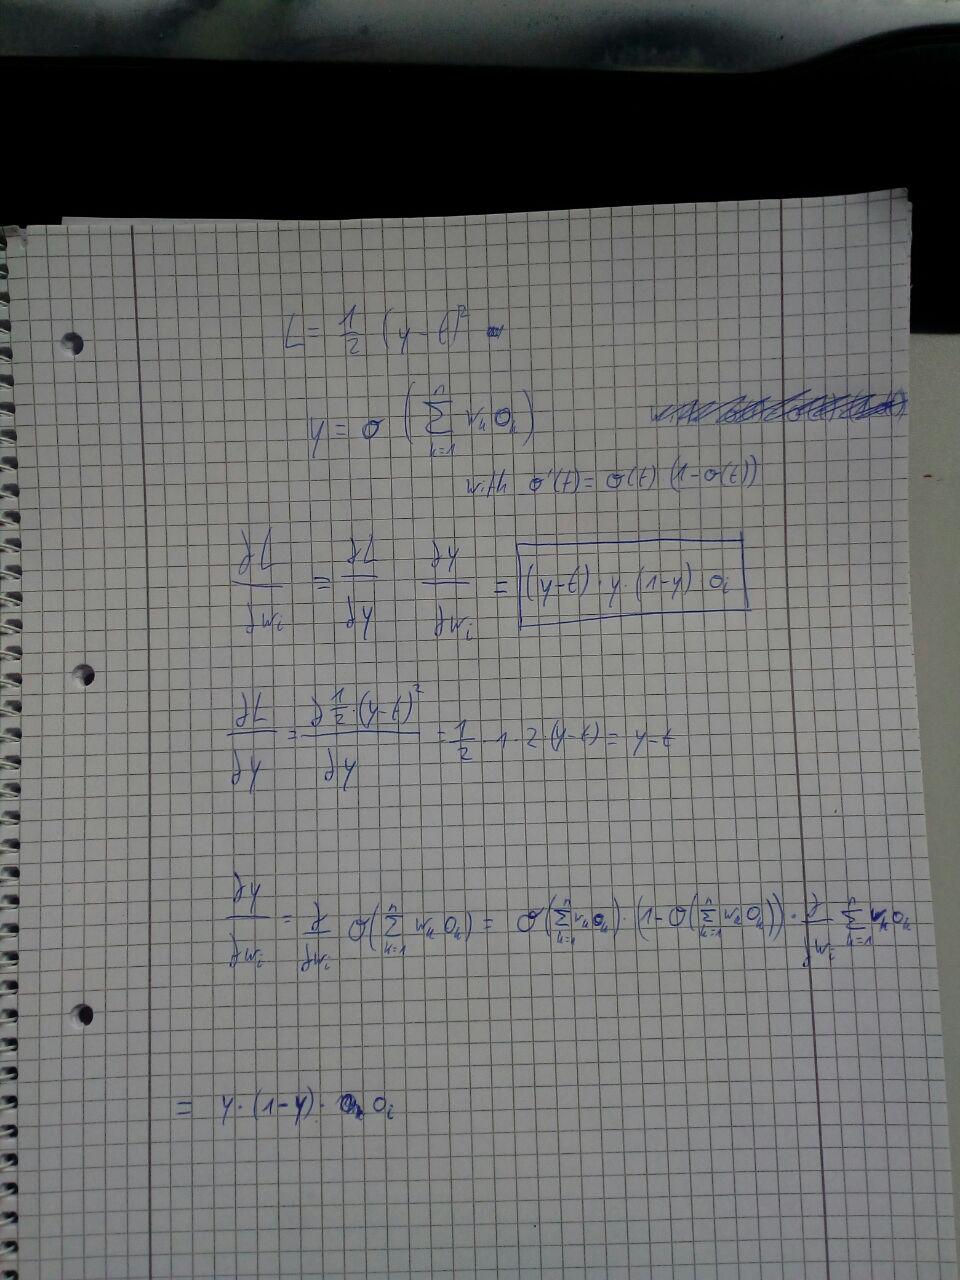 L = 1/2 (y-t)²
y = σ ( Σ_{k=1}^{n} w_k o_k )
with σ'(t) = σ(t) (1-σ(t))
∂L/∂w_i = ∂L/∂y ∂y/∂w_i = (y-t) · y · (1-y) o_i
∂L/∂y = ∂ 1/2 · (y-t)² / ∂y = 1/2 · 1 · 2 · (y-t) = y-t
∂y/∂w_i = ∂/∂w_i σ( Σ_{k=1}^{n} w_k o_k ) = σ( Σ_{k=1}^{n} w_k o_k ) · (1-σ( Σ_{k=1}^{n} w_k o_k )) · ∂/∂w_i Σ_{k=1}^{n} w_k o_k
= y · (1-y) · o_i